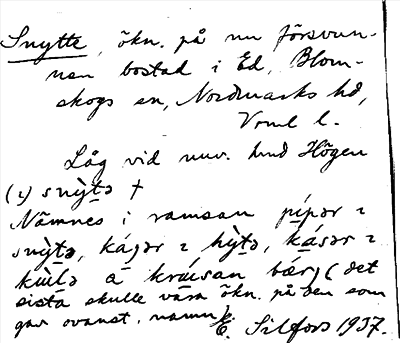 Snytte, ökn. på nu försvun-
nen bostad i Ed, Blom-
skogs sn, Nordmarks hd,
Vrml l.
Låg vid nuv. hmd Högen
(ɩ) snỳtə †
Nämnes i ramsan pípər ɩ
snỳtə, kájər ɩ hỳtə, kásər ɩ
kùlə å kráisan bær, (det
sista skulle vara ökn. på den som
gav ovanst. namn). E. Silfors 1937.